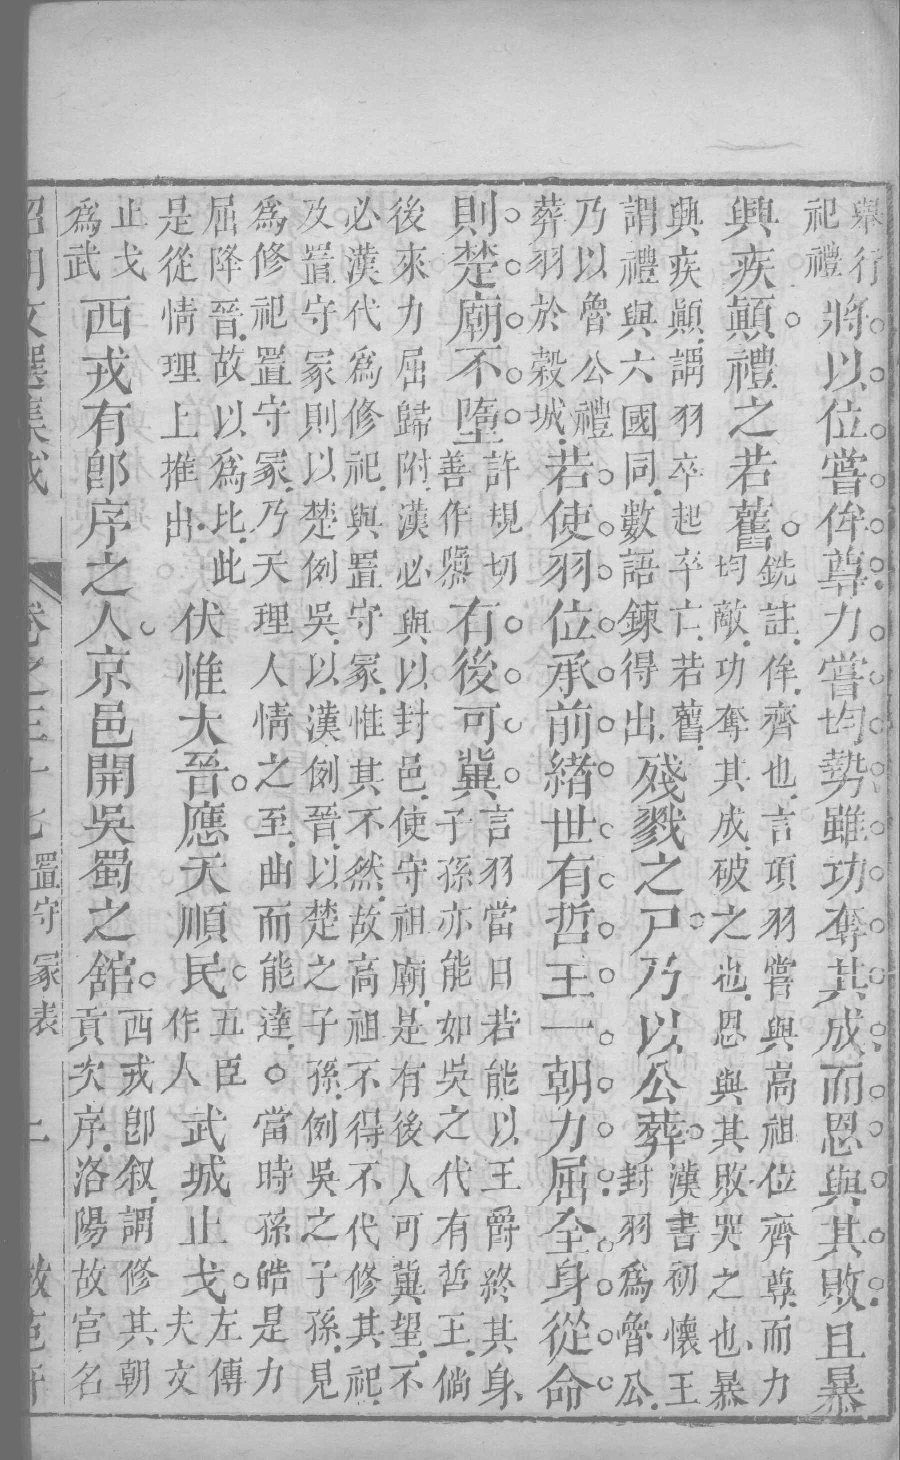 舉行
祀禮
將以位嘗侔尊力嘗均勢雖功奪其成而恩與其敗且暴
興疾顛禮之若舊
銑註侔齊也言項羽嘗與高祖位齊尊而力
均敵功奪其成破之也恩與其敗哭之也暴
興疾顛謂羽卒起卒亡若舊
謂禮與六國同數語鍊得出
殘戮之尸乃以公葬
漢書初懷王
封羽爲魯公
乃以魯公禮
葬羽於穀城
若使羽位承前緒世有哲王一朝力屈全身從命
則楚廟不墮
許規切
善作隳
有後可冀
言羽當日若能以王爵終其身
子孫亦能如吳之代有哲王倘
後來力屈歸附漢必與以封邑使守祖廟是有後人可冀望不
必漢代爲修祀與置守冢惟其不然故高祖不得不代修其祀
及置守冢則以楚例吳以漢例晉以楚之子孫例吳之子孫見
爲修祀置守冢乃天理人情之至曲而能達○當時孫皓是力
屈降晉故以爲比此
是從情理上推出
伏惟大晉應天順民
五臣
作人
武城止戈
左傳
夫文
止戈
爲武
西戎有卽序之人京邑開吳蜀之館
西戎卽叙謂修其朝
貢次序洛陽故宫名
昭明文選集成
卷之三十七
置守冢表